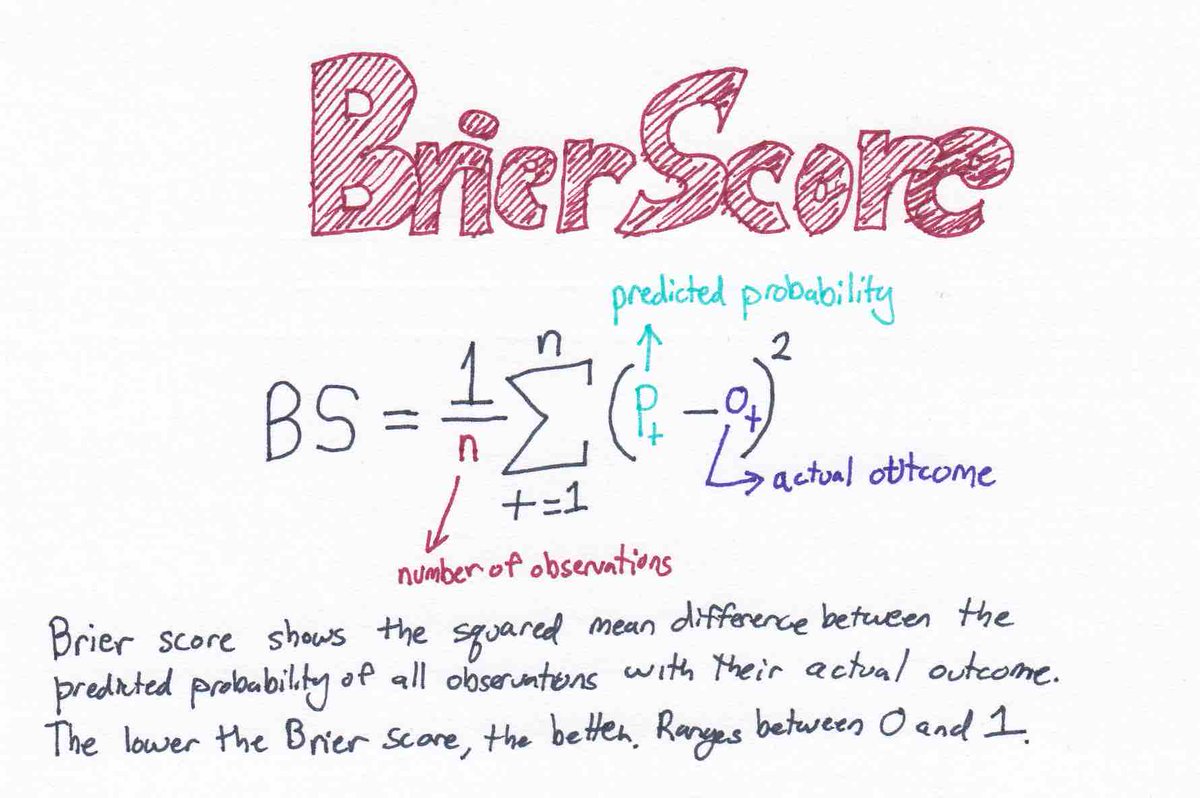 Brier Score
predicted probability
BS = 1/n n Σ t=1 (Pt - Ot)²
actual outcome
number of observations
Brier score shows the squared mean difference between the
predicted probability of all observations with their actual outcome.
The lower the Brier Score, the better. Ranges between 0 and 1.